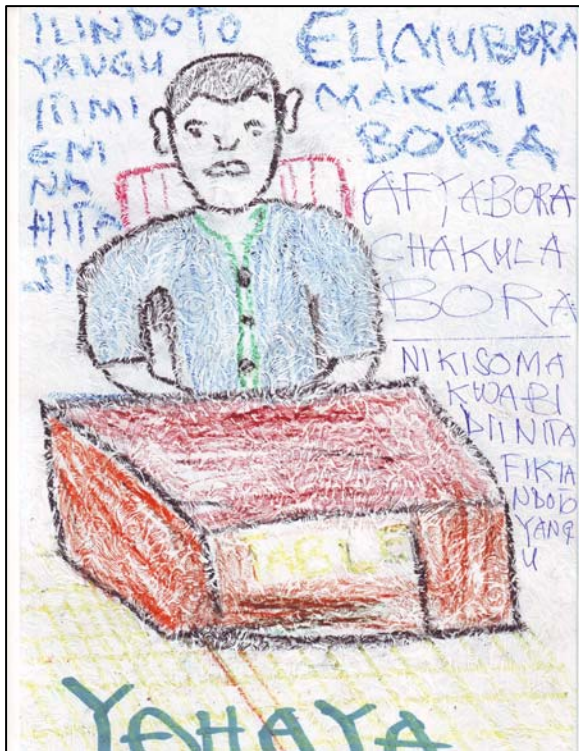 ILINDOTO
YANGU
ITIMI
ENI
NA
HITA
ELIMUBORA
MAKAZI
BORA
AFYABORA
CHAKULA
BORA
NIKISOMA
KWABI
DIINITA
FIKIA
NDOTO
YANG
U
TABLE
YAHAYA